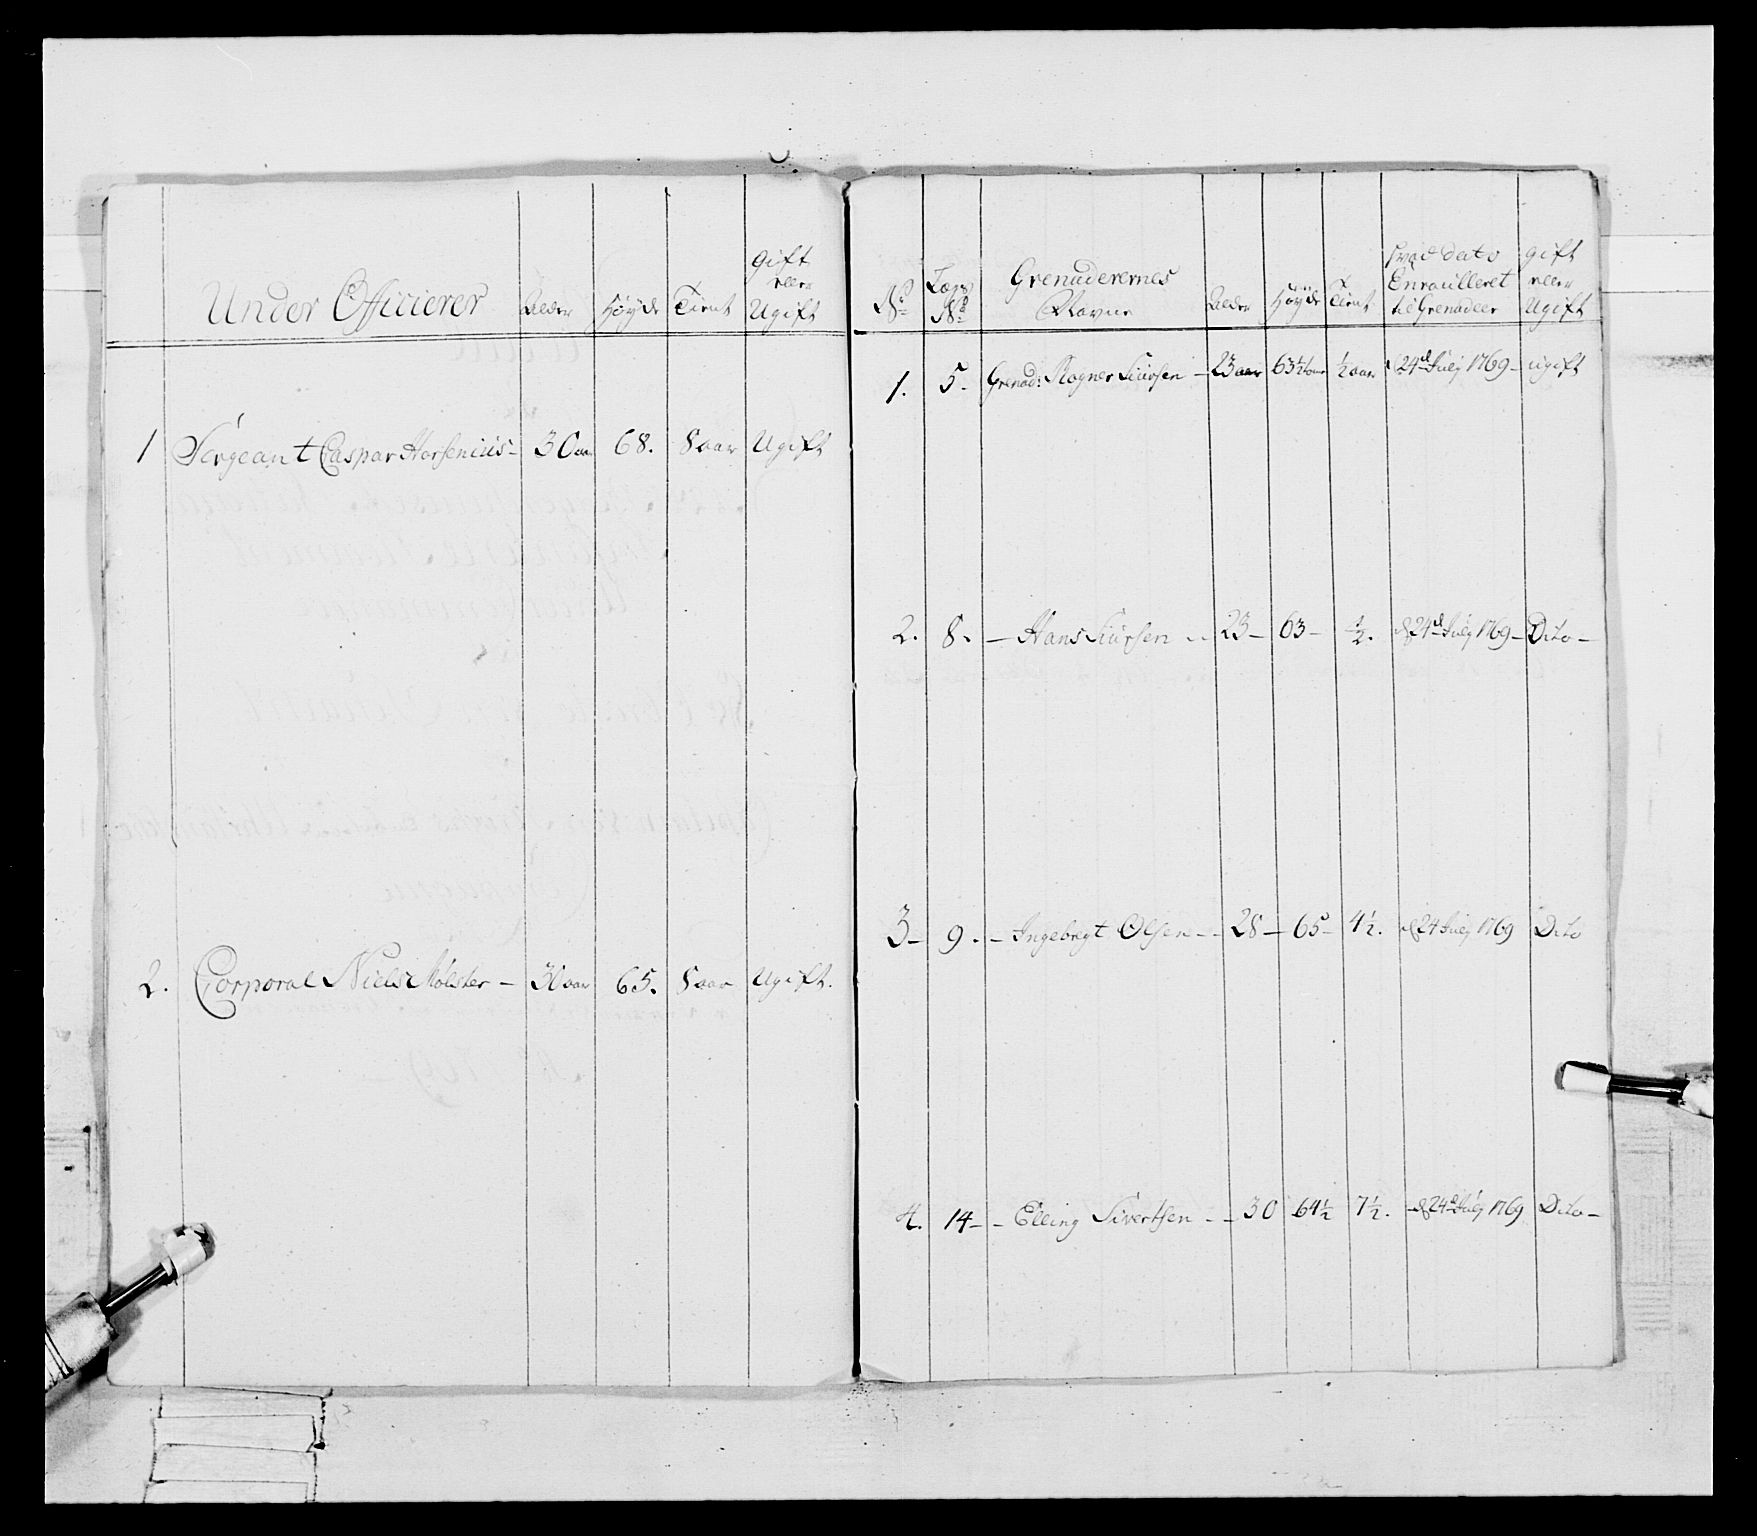 Under Officierer Alder Höyde Tient Gift eller Ugift
1 Sergeant Caspar Horsenius - 30 aar 68. 8 aar Ugift
2. Corporal Niels Mölster - 30 aar 65. 8 aar Ugift.
No Lægs No Grenaderernes Navne Alder Höyde Tient hvad dato Enroulleret til Grenadeer gift eller Ugift
1. 5. Grenad: Rogner Siursen - 23 aar 63½ tom ½ aar d 24de Julij 1769 - ugift
2. 8. - Hans Siursen - 23 - 63 - ½. d 24de Julij 1769 - Dito -
3 - 9. - Ingebregt Olsen - 28 - 65 - 4½. d 24 Julij 1769 Dito
4. 14 - - Elling Sivertsen - - 30 64½ 7½. d 24de Julij 1769 Dito -